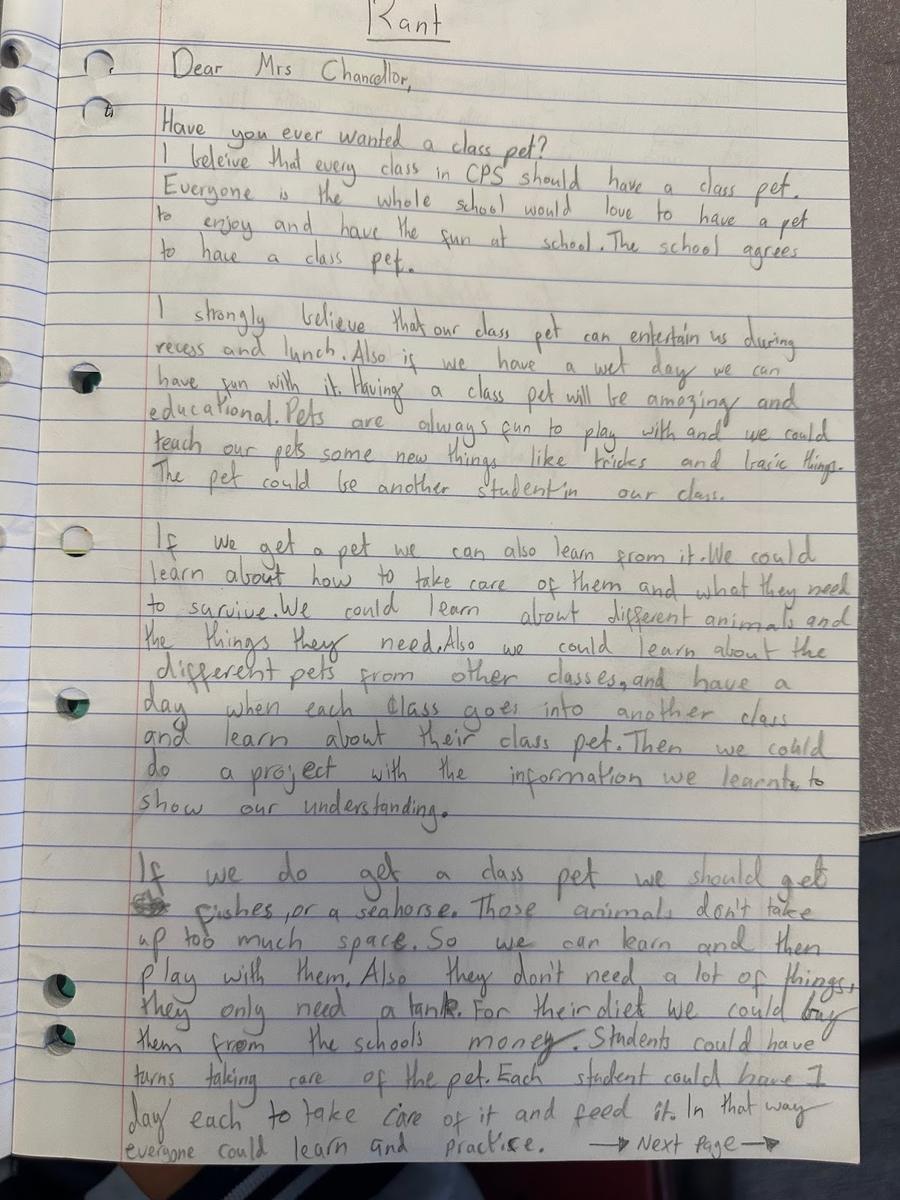 Rant
Dear Mrs Chancellor,
Have you ever wanted a class pet?
I beleive that every class in CPS should have a class pet.
Everyone is the whole school would love to have a pet
to enjoy and have the fun at school. The school agrees
to have a class pet.
I strongly believe that our class pet can entertain us during
recess and lunch. Also if we have a wet day we can
have fun with it. Having a class pet will be amazing and
educational. Pets are always fun to play with and we could
teach our pets some new things like tricks and basic things.
The pet could be another student in our class.
If we get a pet we can also learn from it. We could
learn about how to take care of them and what they need
to survive. We could learn about different animals and
the things they need. Also we could learn about the
different pets from other classes, and have a
day when each class goes into another class
and learn about their class pet. Then we could
do a project with the information we learnt, to
show our understanding.
If we do get a class pet we should get
fishes, or a seahorse. Those animals don't take
up too much space. So we can learn and then
play with them. Also they don't need a lot of things,
they only need a tank. For their diet we could buy
them from the schools money. Students could have
turns taking care of the pet. Each student could have 1
day each to take care of it and feed it. In that way
everyone could learn and practise. → Next Page →